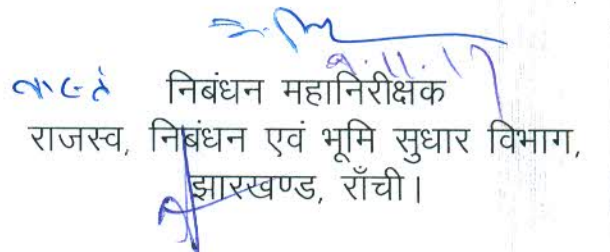 9.11.17
वास्ते निबंधन महानिरीक्षक
राजस्व, निबंधन एवं भूमि सुधार विभाग,
झारखण्ड, राँची।